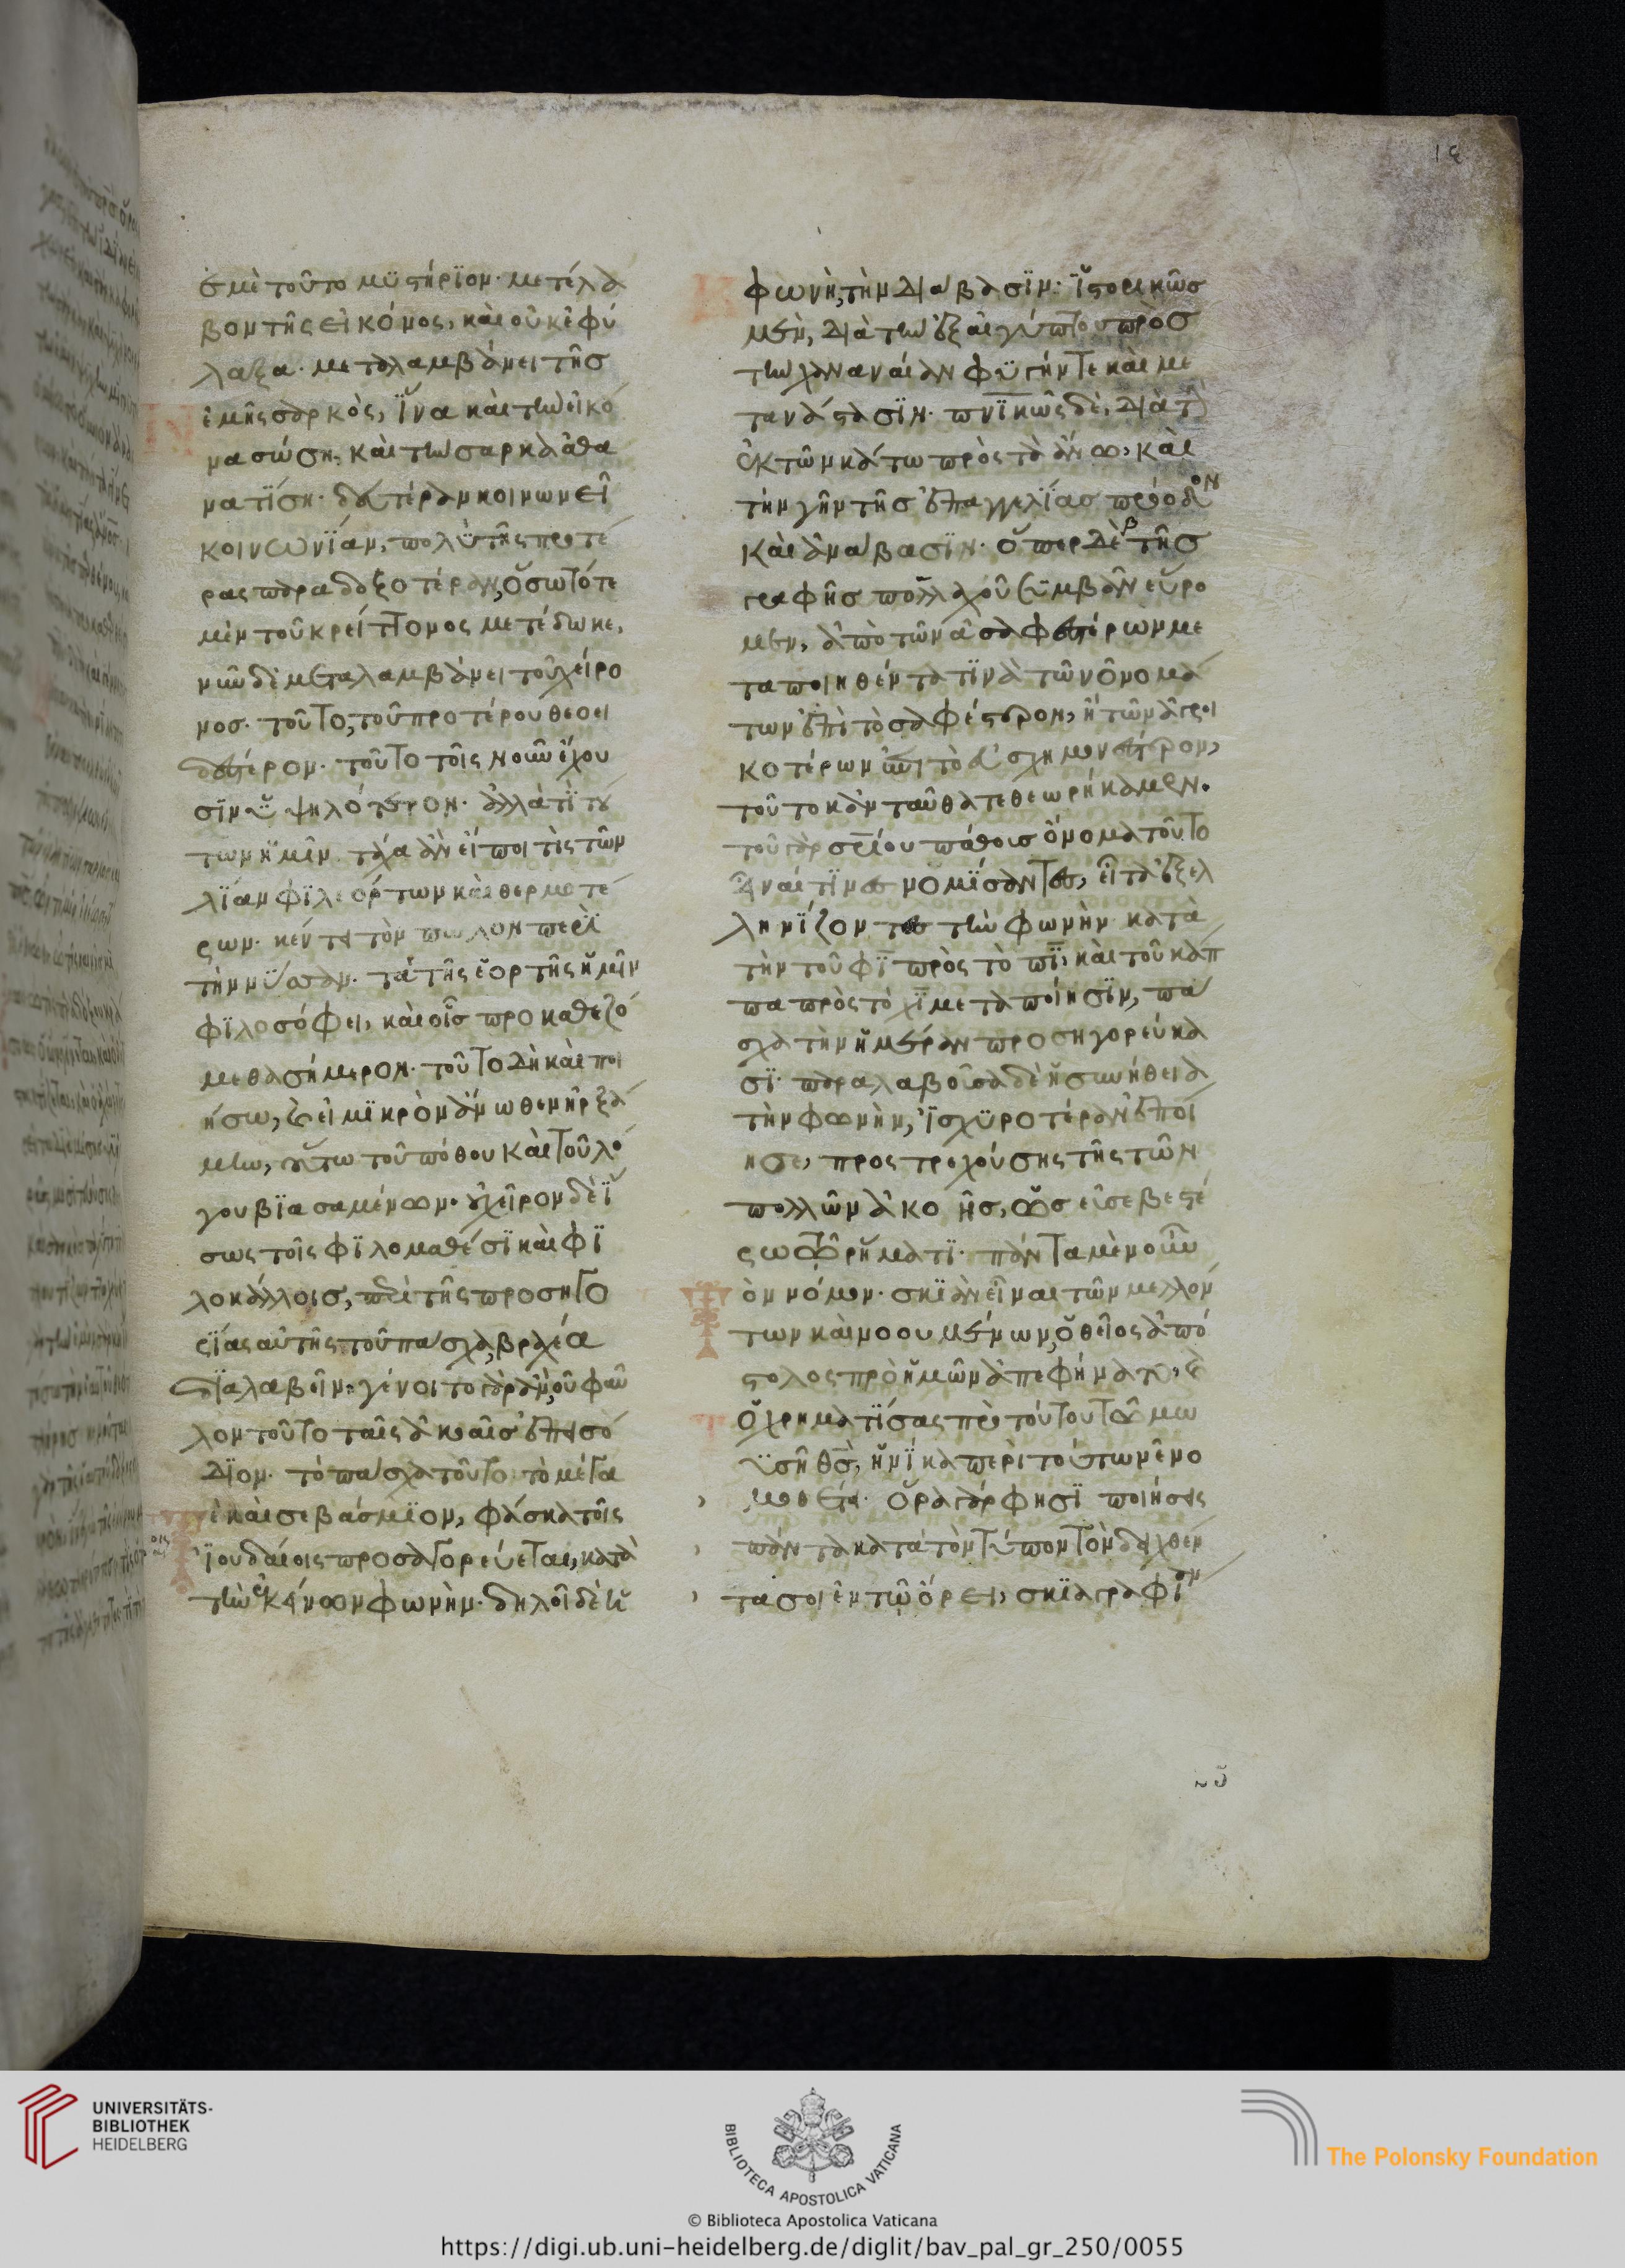 ἐμὲ τοῦτο μϋστήρϊον· μετέλα
βον τῆς εἰκόνος, καὶ οὐκ ἐφύ
λαξα· μεταλαμβάνει τῆς
ἐμῆς σαρκὸς, ἵνα καὶ τὴν εἰκό
να σώση, καὶ τὴν σάρκα ἀθα
νατΐση· δευτέραν κοινωνεῖ
κοινωνΐαν, πολὺ τῆς προτέ
ρας παραδοξοτέραν, ὅσω τότε
μὲν τοῦ κρείττονος μετέδωκε,
νῦν δὲ μεταλαμβάνει τοῦ χείρο
νος. τοῦτο, τοῦ προτέρου θεοει
δέστερον. τοῦτο τοῖς νοῦν ἔχου
σϊν ὑψηλότερον. ἀλλὰ τΐ τού
των ἡμῖν τάχα ἂν εἴποι τὶς τῶν
λΐαν φϊλεόρτων καὶ θερμοτέ
ρων. κέντει τὸν πῶλον περὶ
τὴν νύσσαν. τὰ τῆς ἑορτῆς ἡμῖν
φϊλοσόφει, καὶ οἷς προκαθεζό
μεθα σήμερον. τοῦτο δὴ καὶ ποι
ήσω, καὶ εἰ μϊκρὸν ἄνωθεν ἠρξά
μην, οὕτω τοῦ πόθου καὶ τοῦ λό
γου βϊασαμένων. οὐ χεῖρον δὲ ἴ
σως τοῖς φϊλομαθέσϊ καὶ φϊ
λοκάλλοις, περὶ τῆς προσηγο
ρΐας αὐτῆς τοῦ πάσχα, βραχέα
δϊαλαβεῖν. γένοιτο γὰρ ἂν, οὐ φαῦ
λον τοῦτο ταῖς ἀκοαῖς ἐπεισό
δϊον. τὸ πάσχα τοῦτο τὸ μέγα
καὶ σεβάσμϊον, φάσκα τοῖς
ἰουδαίοις προσαγορεύεται, κατὰ
τὴν ἐκείνων φωνὴν. δηλοῖ δὲ ἡ
φωνὴ, τὴν διάβασϊν. ἱστορικῶς
μὲν, διὰ τὴν ἐξ αἰγύπτου πρὸς
τὴν χαναναίαν φϋγήν τε καὶ με
τανάστασϊν. πνϊκῶς δὲ, διὰ τὴν
ἐκ τῶν κάτω πρὸς τὰ ἄνω, καὶ
τὴν γῆν τῆς ἐπαγγελΐας πρόοδον
καὶ ἀνάβασϊν. ὅπερ δὲ τῆς
γραφῆς πολλαχοῦ συμβὰν εὕρο
μεν, ἀπὸ τῶν ἀσαφεστέρων με
ταποιηθέντα τϊνὰ τῶν ὀνομά
των ἐπὶ τὸ σαφέστερον, ἢ τῶν ἀγροι
κοτέρων ἐπὶ τὸ εὐσχημονέστερον,
τοῦτο κἀνταῦθα τεθεωρήκαμεν.
τοῦ γὰρ σρίου πάθους ὄνομα τοῦτο
εἶναί τϊνες νομΐσαντες, εἶτα ἐξελ
ληνΐζοντες τὴν φωνὴν κατὰ
τὴν τοῦ φῖ πρὸς τὸ πῖ, καὶ τοῦ κάπ
πα πρὸς τὸ χῖ μεταποίησϊν, πά
σχα τὴν ἡμέραν προσηγορεύκα
σϊ. παραλαβοῦσα δὲ ἡ συνήθεια
τὴν φωνὴν, ἰσχϋροτέραν ἐποί
ησε, προστρεχούσης τῆς τῶν
πολλῶν ἀκοῆς, ὡς εὐσεβεστέ
ρω τῶ ῥήματϊ. πάντα μὲν οὖν
τὸν νόμον. σκϊὰν εἶναι τῶν μελλόν
των καὶ νοουμένων, ὁ θεῖος ἀπό
στολος πρὸ ἡμῶν ἀπεφήνατο, καὶ
ὁ χρηματΐσας πρὸ τούτου τῶ μω
ϋσῆ θς, ἡνΐκα περὶ τούτων ἐνο
μοθέτει. ὅρα γὰρ φησϊ ποιήσεις
πάντα κατὰ τὸν τύπον τὸν δειχθέν
τα σοι ἐν τῷ ὄρει, σκϊαγραφΐαν
UNIVERSITÄTS-
BIBLIOTHEK
HEIDELBERG
BIBLIOTECA APOSTOLICA VATICANA
© Biblioteca Apostolica Vaticana
The Polonsky Foundation
https://digi.ub.uni-heidelberg.de/diglit/bav_pal_gr_250/0055